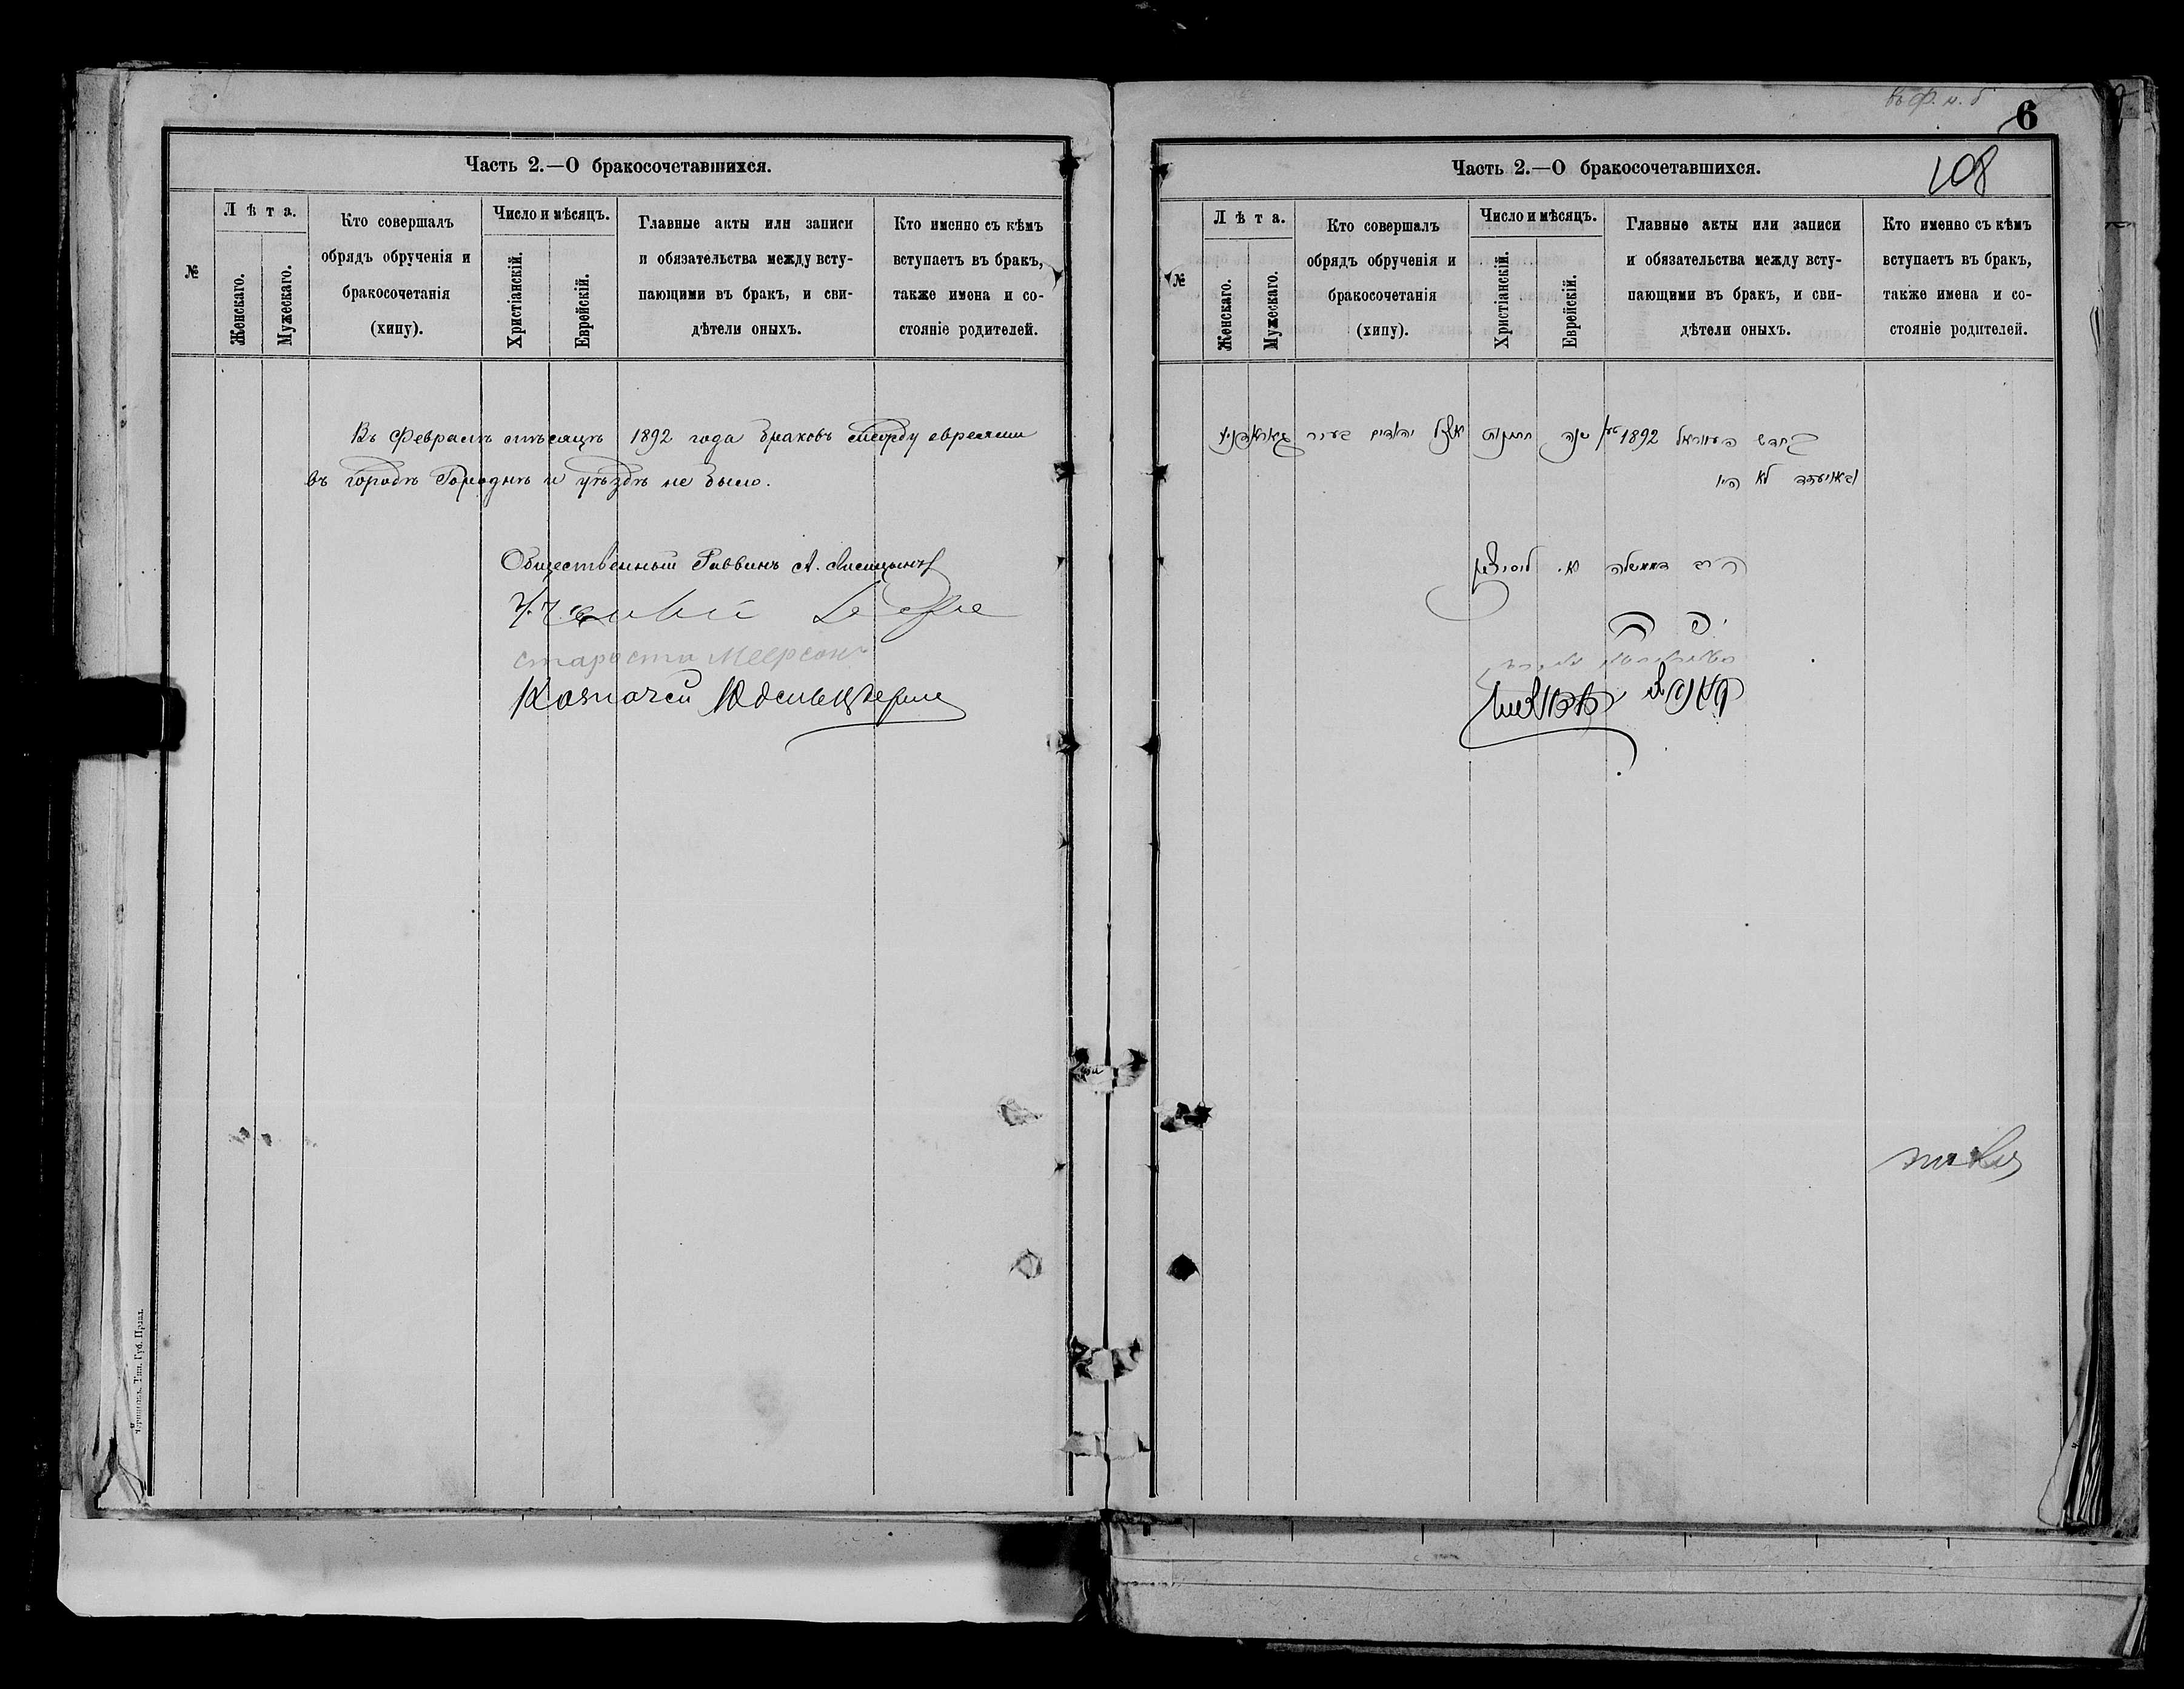 Часть 2.—О бракосочетавшихся.
№
Лѣта.
Женскаго.
Мужескаго.
Кто совершалъ
обрядъ обрученія и
бракосочетанія
(хипу).
Число и мѣсяцъ.
Христіанскій.
Еврейскій.
Главные акты или записи
и обязательства между всту-
пающими въ бракъ, и сви-
дѣтели оныхъ.
Кто именно съ кѣмъ
вступаетъ въ бракъ,
также имена и со-
стояніе родителей.
Въ Февралѣ мѣсяцѣ 1892 года браковъ между евреями
въ городѣ Городнѣ и уѣздѣ не было.
Общественный Раввинъ А. Лисицынъ
староста Меерсонъ
Казначей
Тип. Губ. Правл.
6
108
Часть 2.—О бракосочетавшихся.
№
Лѣта.
Женскаго.
Мужескаго.
Кто совершалъ
обрядъ обрученія и
бракосочетанія
(хипу).
Число и мѣсяцъ.
Христіанскій.
Еврейскій.
Главные акты или записи
и обязательства между всту-
пающими въ бракъ, и сви-
дѣтели оныхъ.
Кто именно съ кѣмъ
вступаетъ въ бракъ,
также имена и со-
стояніе родителей.
בחדש פעווראל 1892 שנה חתונות אצל יהודים בעיר גאראדניא
ובאויעזד לא היו
הרב דממשלה א. ליסיצין